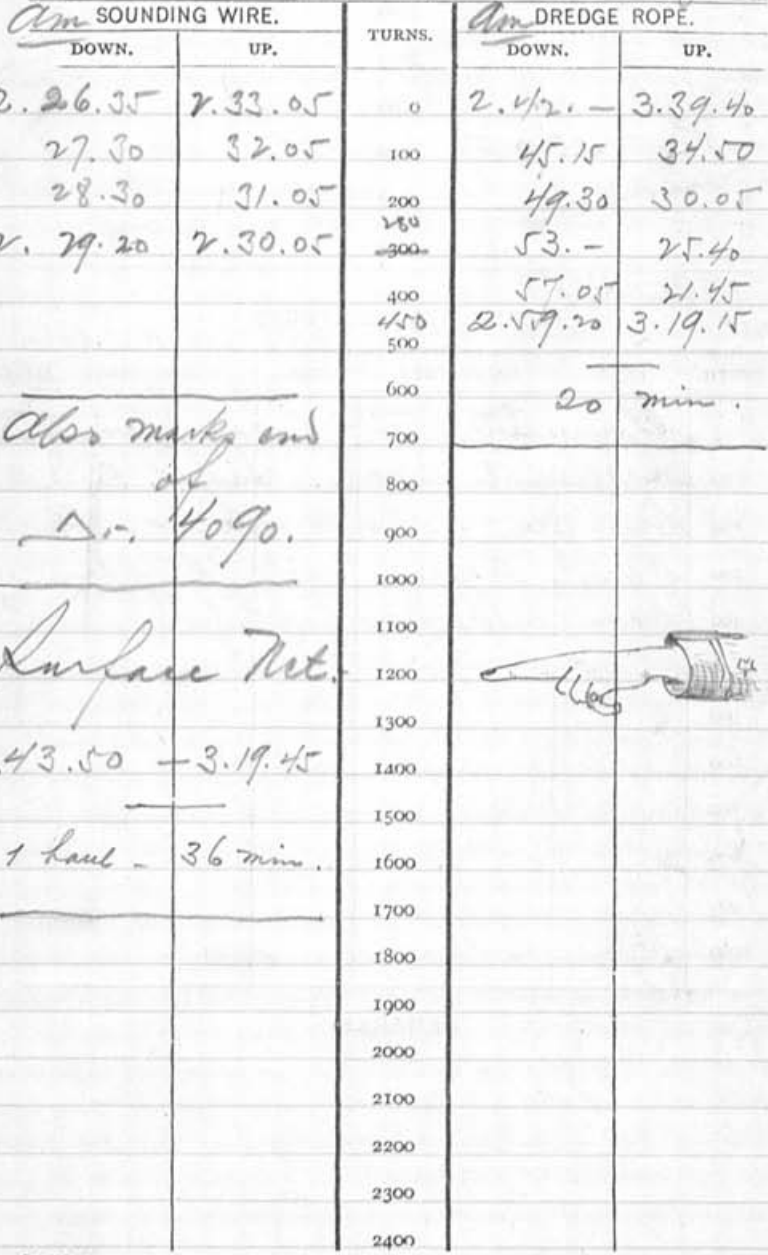 am SOUNDING WIRE. TURNS. am DREDGE ROPE.
DOWN. UP. DOWN. UP.
2. 26.35 2.33.05 0 2.42. — 3.39.40
27.30 32.05 100 45.15 34.50
28.30 31.05 200 49.30 30.05
280
2. 29.20 2.30.05 300 53. — 25.40
400 57.05 21.45
450 2.59.20 3.19.15
500
600 20 min.
Also marks end 700
of 800
4090. 900
1000
1100
Surface Net. 1200
1300
43.50 — 3.19.45 1400
1500
1 haul — 36 min. 1600
1700
1800
1900
2000
2100
2200
2300
2400